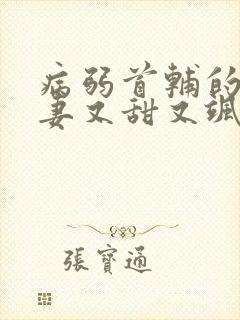 病弱首輔的
妻又甜又颯
張寶通